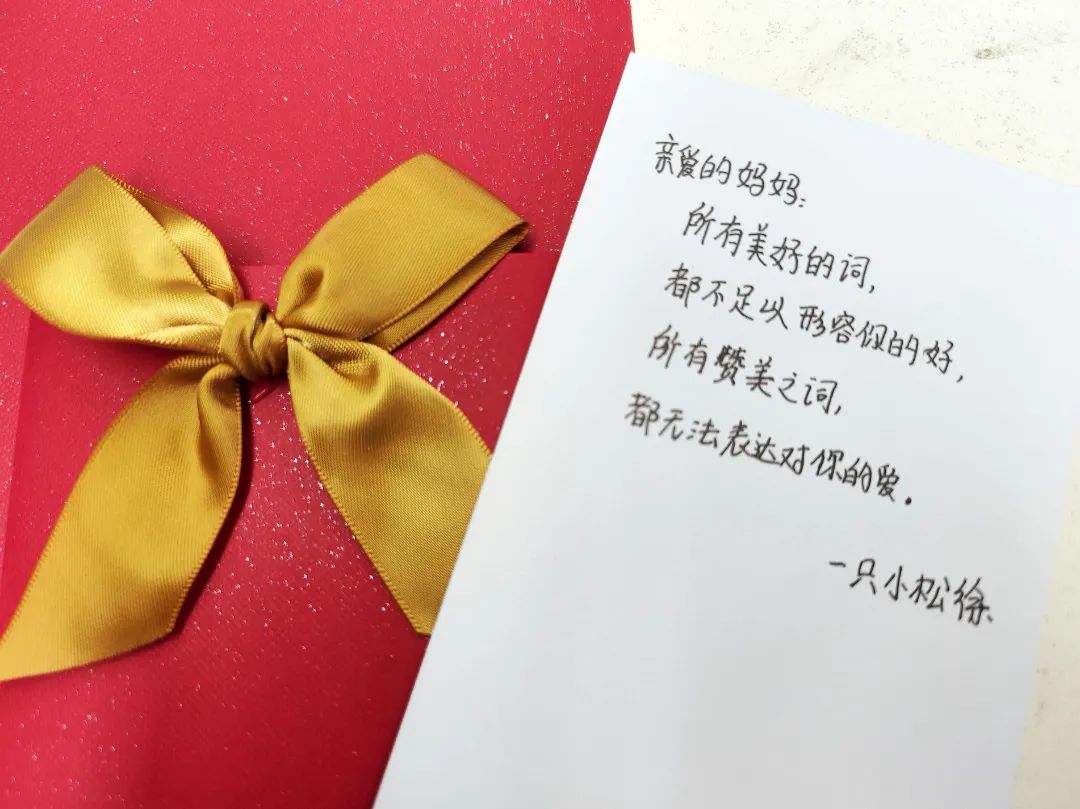 亲爱的妈妈:
所有美好的词,
都不足以形容你的好,
所有赞美之词,
都无法表达对你的爱.
一只小松徐